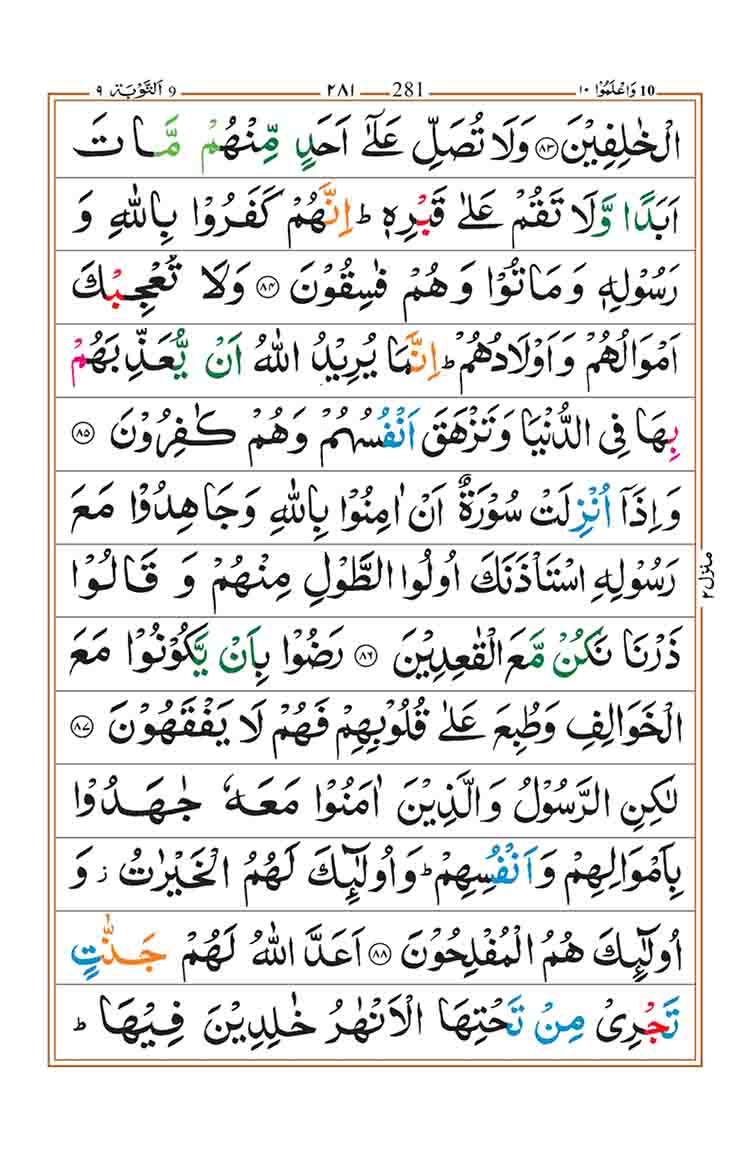 10 وَاعْلَمُوْا ١٠ 281 ٢٨١ 9 اَلتَّوْبَة ٩
الْخٰلِفِيْنَ ۝٨٣ وَلَا تُصَلِّ عَلٰٓى اَحَدٍ مِّنْهُمْ مَّاتَ
اَبَدًا وَّلَا تَقُمْ عَلٰى قَبْرِهٖ ؕ اِنَّهُمْ كَفَرُوْا بِاللّٰهِ وَ
رَسُوْلِهٖ وَمَاتُوْا وَهُمْ فٰسِقُوْنَ ۝٨٤ وَلَا تُعْجِبْكَ
اَمْوَالُهُمْ وَاَوْلَادُهُمْ ؕ اِنَّمَا يُرِيْدُ اللّٰهُ اَنْ يُّعَذِّبَهُمْ
بِهَا فِى الدُّنْيَا وَتَزْهَقَ اَنْفُسُهُمْ وَهُمْ كٰفِرُوْنَ ۝٨٥
وَاِذَاۤ اُنْزِلَتْ سُوْرَةٌ اَنْ اٰمِنُوْا بِاللّٰهِ وَجَاهِدُوْا مَعَ
رَسُوْلِهِ اسْتَاْذَنَكَ اُولُوا الطَّوْلِ مِنْهُمْ وَ قَالُوْا
ذَرْنَا نَكُنْ مَّعَ الْقٰعِدِيْنَ ۝٨٦ رَضُوْا بِاَنْ يَّكُوْنُوْا مَعَ
الْخَوَالِفِ وَطُبِعَ عَلٰى قُلُوْبِهِمْ فَهُمْ لَا يَفْقَهُوْنَ ۝٨٧
لٰكِنِ الرَّسُوْلُ وَالَّذِيْنَ اٰمَنُوْا مَعَهٗ جٰهَدُوْا
بِاَمْوَالِهِمْ وَاَنْفُسِهِمْ ؕ وَاُولٰٓئِكَ لَهُمُ الْخَيْرٰتُ ز وَ
اُولٰٓئِكَ هُمُ الْمُفْلِحُوْنَ ۝٨٨ اَعَدَّ اللّٰهُ لَهُمْ جَنّٰتٍ
تَجْرِىْ مِنْ تَحْتِهَا الْاَنْهٰرُ خٰلِدِيْنَ فِيْهَا ؕ
منزل ٢